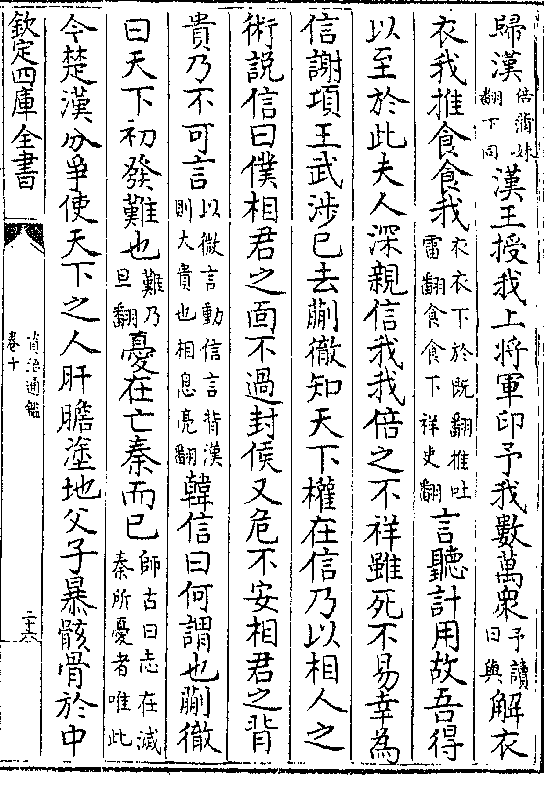 歸漢倍蒲妹翻下同漢王授我上將軍印予我數萬衆予讀曰與解衣
衣我推食食我衣衣下於既翻推吐雷翻食食下祥吏翻言聽計用故吾得
以至於此夫人深親信我我倍之不祥雖死不易幸為
信謝項王武涉已去蒯徹知天下權在信乃以相人之
術説信曰僕相君之面不過封侯又危不安相君之背
貴乃不可言以微言動信言背漢則大貴也相息亮翻韓信曰何謂也蒯徹
曰天下初發難也難乃旦翻憂在亡秦而已師古曰志在滅秦所憂者唯此
今楚漢分爭使天下之人肝膽塗地父子暴骸骨於中
欽定四庫全書
資治通鑑
卷十
二十六